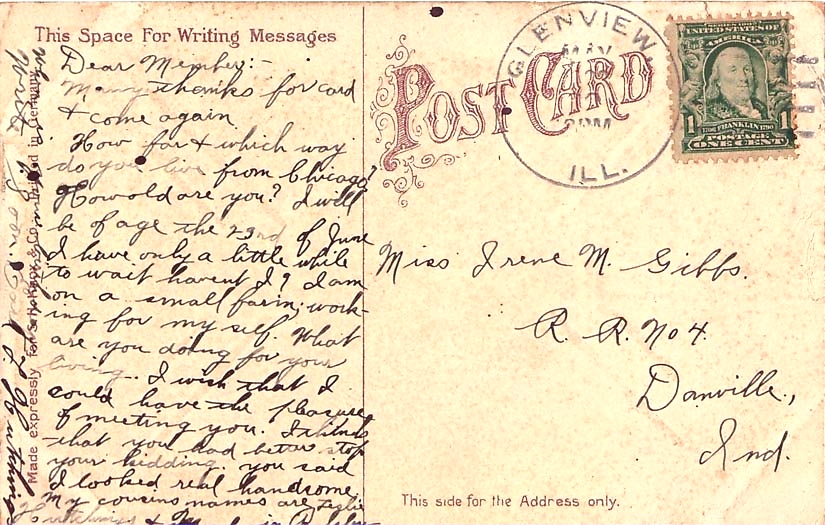 This Space For Writing Messages
Dear Member:-
Many thanks for card
& come again
How far & which way
do you live from Chicago?
How old are you? I will
be of age the 23rd of June
I have only a little while
to wait havent I? I am
on a small farm, work-
ing for my self. What
are you doing for your
living. I wish that I
could have the pleasure
of meeting you. I think
that you had better stop
your kidding. you said
I looked real handsome.
My cousins names are Leslie
Hutchings &
Write soon
Made expressly for Co. Printed in Germany
POST CARD
GLENVIEW
MAY
PM
ILL.
SERIES 1902
UNITED STATES OF
AMERICA
1 1
FRANKLIN
POSTAGE
ONE CENT
Miss Irene M. Gibbs.
R. R. No 4.
Danville,
Ind.
This side for the Address only.